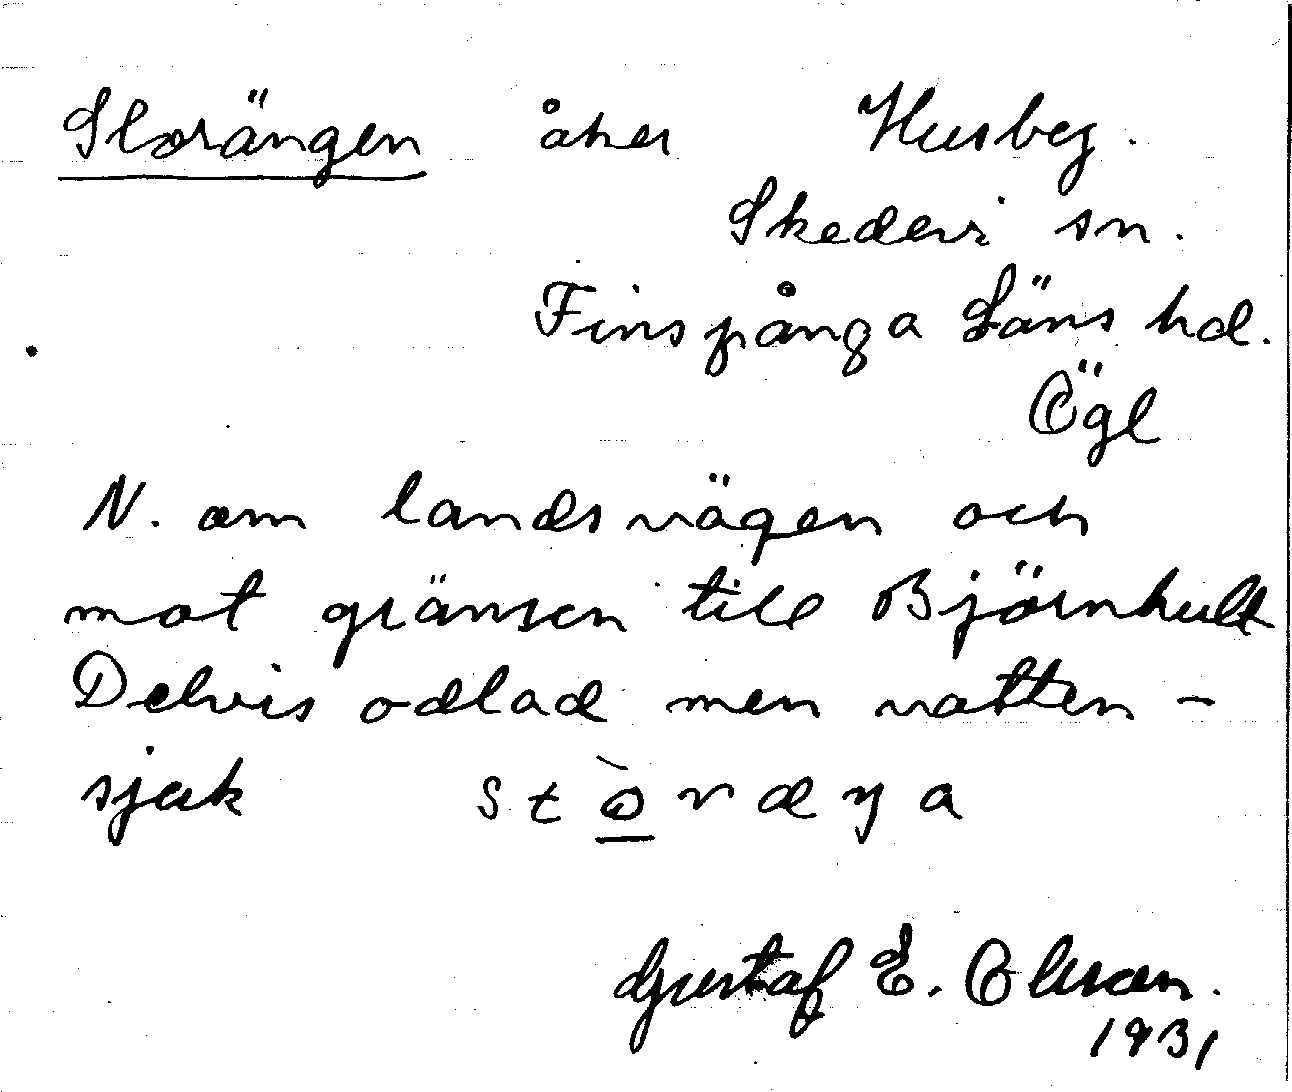 Storängen åker Husbeg.
Skedevi sn.
Finspånga Läns hd.
Ögl
N. om landsvägen och
mot gränsen till Björnhult
Delvis odlad men vatten-
sjuk
Gustaf E. Olsson.
1931